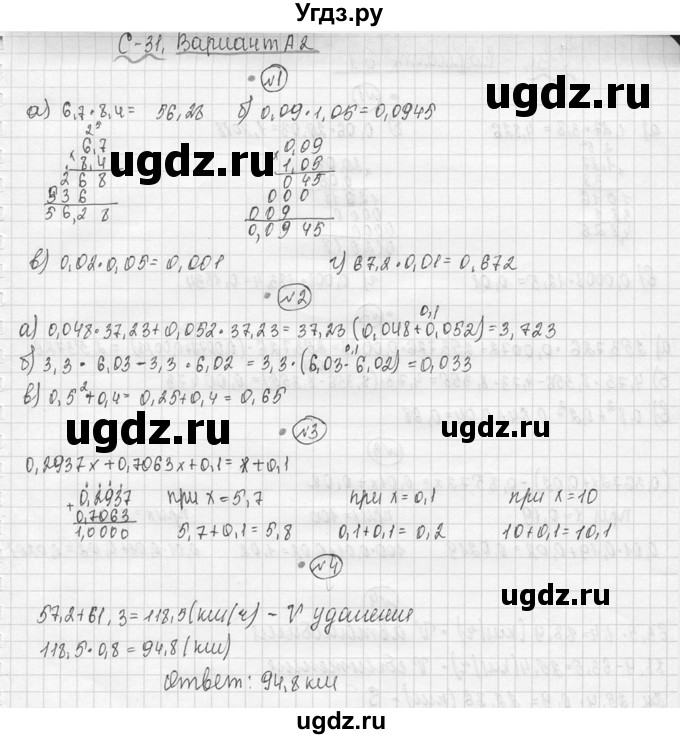 Угдз.ру
С-31, Вариант А2
№1
а) 6,7·8,4= 56,28 б) 0,09·1,05=0,0945
25
6,7 0,09
× 8,4 × 1,05
268 045
536 000
56,28 009
0,0945
в) 0,02·0,05=0,001 г) 67,2·0,01=0,672
№2
0,1
а) 0,048·37,23+0,052·37,23=37,23(0,048+0,052)=3,723
0,1
б) 3,3·6,03-3,3·6,02=3,3·(6,03-6,02)=0,033
в) 0,5²+0,4=0,25+0,4=0,65
№3
0,2937x+0,7063x+0,1=x+0,1
+ 0,2937 при x=5,7 при x=0,1 при x=10
0,7063
1,0000 5,7+0,1=5,8 0,1+0,1=0,2 10+0,1=10,1
№4
57,2+61,3=118,5(км/ч)-V удаления
118,5·0,8=94,8(км)
Ответ: 94,8 км
ugdz.ru
ugdz.ru
ugdz.ru
ugdz.ru
ugdz.ru
ugdz.ru
ugdz.ru
ugdz.ru